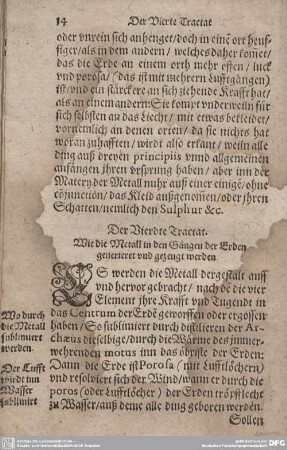 14
Der Vierte Tractat
oder vnrein sich anhenget/doch in einē ort heuf-
figer/als in dem andern/ welches daher komet/
das die Erde an einem orth mehr offen/ luck
vnd porosa/ (das ist mit mehrern lufftgängen)
ist/vnd ein stärckere an sich ziehende Krafft hat/
als an einem andern: Sie kompt vnderweiln für
sich selbsten an das Liecht/ mit etwas bekleidet/
vornemlich an denen orten/ da sie nichts hat
woran zuhafften/ wirdt also erkant/ weiln alle
ding auß dreyen principiis vnnd allgemeinen
anfängen jhren vrsprung haben/ aber inn der
Matery der Metall nuhr auß einer einigē/ohne
cōjunctiōn/das Kleid außgenom̄en/oder jhren
Schatten/nemlich den Sulphur &c.
Der Vierdte Tractat.
Wie die Metall in den Gängen der Erden
generieret vnd gezeugt werden
ES werden die Metall dergestalt auff
vnd hervor gebracht/ nach dē die vier
Element jhre Krafft vnd Tugende in
das Centrum der Erdē geworffen oder ergossen
haben/ So sublimiert durch distilieren der Ar-
chæus dieselbige/durch die Wärme des jmmer-
wehrenden motus inn das obriste der Erden:
Dann die Erde ist Porosa (mit Lufftlöchern)
vnd resolviert sich der Wind/wann er durch die
poros (oder Lufftlöcher) der Erden tröpflecht
zu Wasser/auß deme alle ding geboren werden.
Sollen
Wo durch
die Metall
sublimiert
werden.
Der Lufft
zündt inn
Wasser
sublimirt